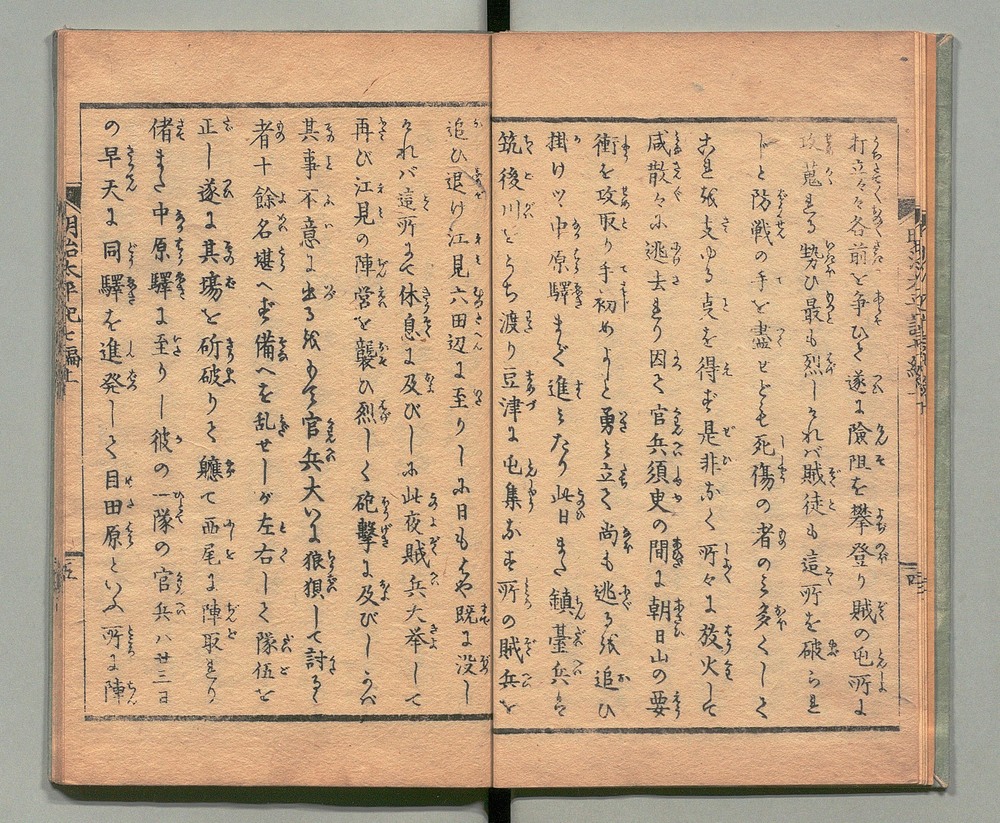 打立々々各前を争ひて遂に険阻を攀登り賊の屯所に
攻蒐る勢ひ最も烈しければ賊徒も這所を破られ
じと防戦の手を盡せども死傷の者のミ多くして
是を支ゆる点を得ず是非なく所々に放火して
咸散々に逃去れり因て官兵須臾の間に朝日山の要
衝を攻取り手初めよしと勇み立て尚も逃るを追ひ
掛けツ中原驛まで進ミたり此日また鎮臺兵は
筑後川をうち渡り豆津に屯集なす所の賊兵を
追ひ退け江見六田辺に至りしに日もはや既に没し
けれバ這所にて休息に及びしに此夜賊兵大挙して
再び江見の陣営を襲ひ烈しく砲撃に及びしかバ
其事不意に出るをもて官兵大いに狼狽して討るゝ
者十餘名堪へず備へを乱せしが左右して隊伍を
正し遂に其塲を斫破りて軈て西尾に陣取れり
偖また中原驛に至りし彼の一隊の官兵ハ廿三日
の早天に同驛を進発して目田原といふ所に陣
明治太平記七編上
五